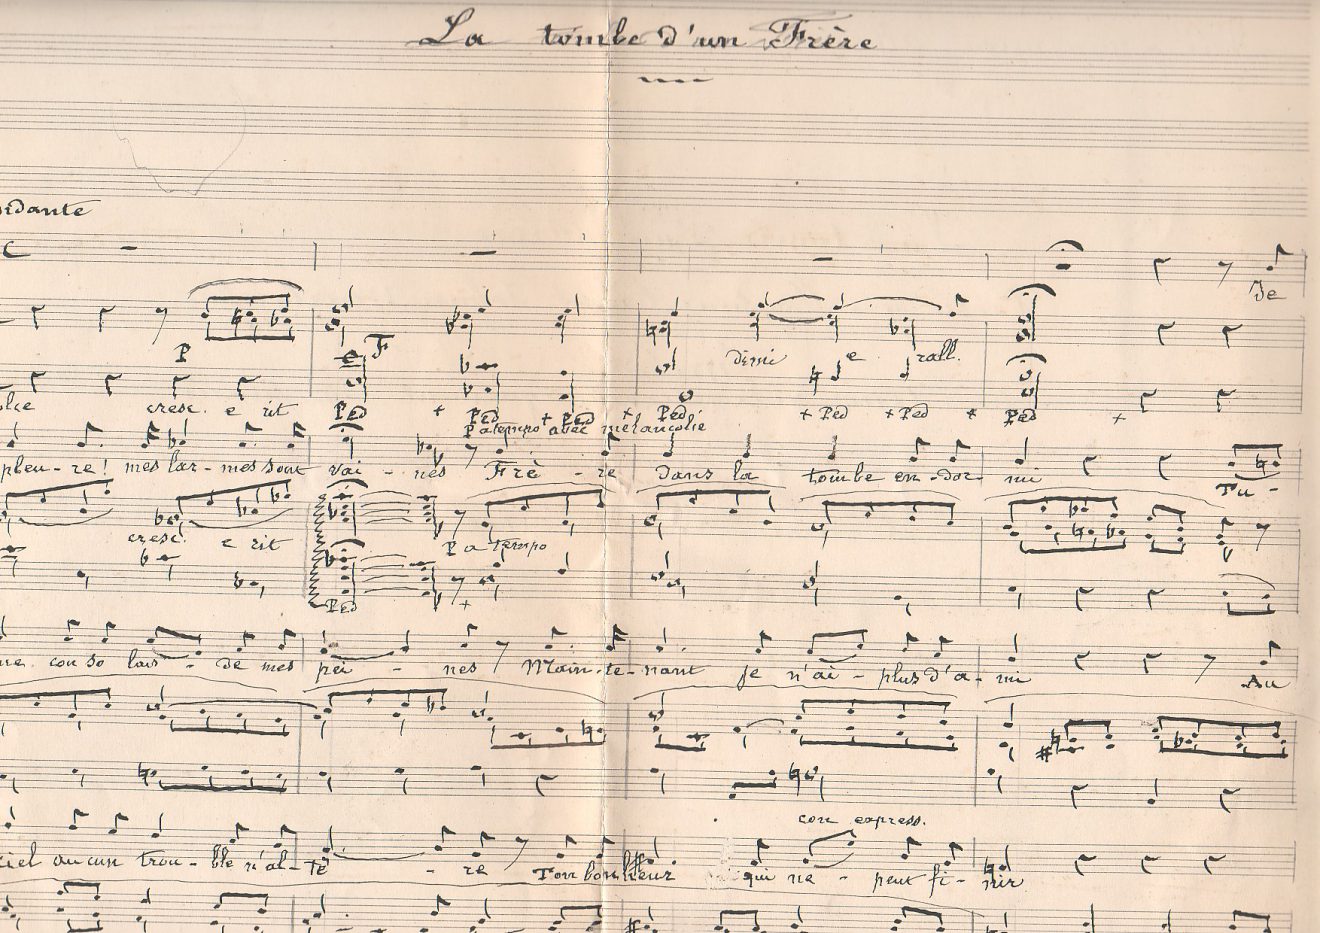 La tombe d'un Frère
De
P F dimi e rall.
cresc. e rit Ped + Ped + Ped + Ped + Ped + Ped * Ped +
P a tempo avec mélancolie
pleu - re! mes lar - mes sont vai - nes Frè - re dans la tombe en - dor - mi Tu -
cresc. e rit P a tempo
Ped +
con so lais - de mes pei - nes Main - te - nant je n'ai - plus d'a - mi Au
con express.
ciel aucun trou - ble n'al - tè - re Ton bonheur qui ne - peut fi - nir